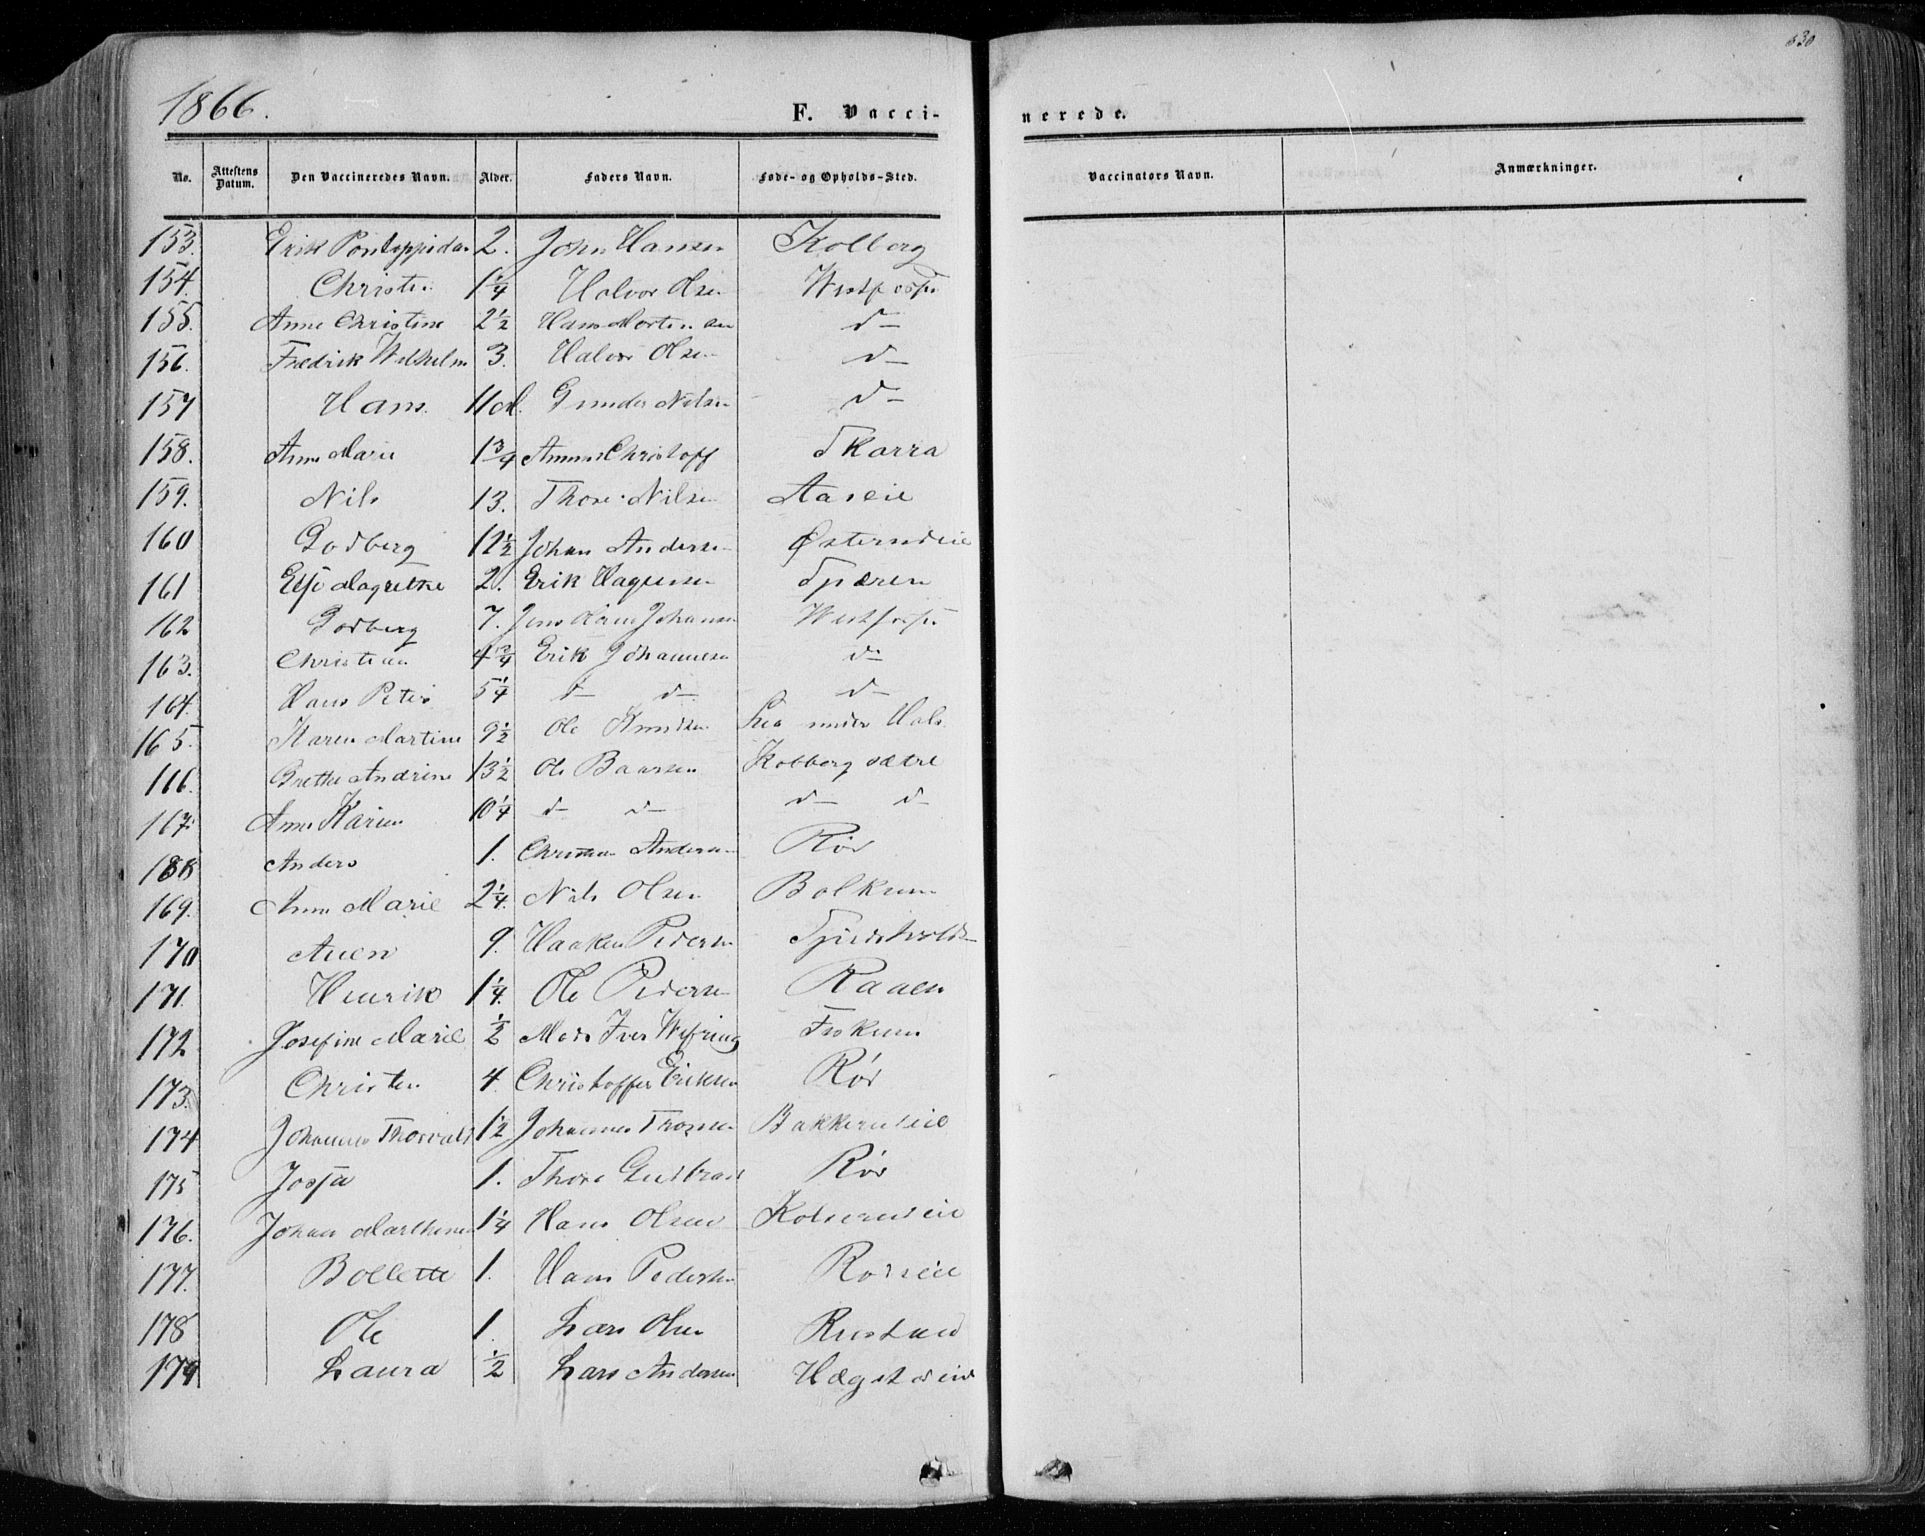 630
1866.
F. Vacci-
nerede.
No. Attestens Datum. Den Vaccineredes Navn. Alder. Faders Navn. Føde- og Opholds-Sted. Vaccinators Navn. Anmærkninger.
153. Erik Pontoppidan 2. John Hansen Kolberg
154. Christen 1 1/4 Halvor Olsen
155. Anne Christine 2 1/2 Hans Mortensen d-
156. Fredrik Wilhelm 3. Halvor Olsen d-
157 Hans. 11 Gunder Nilsen d-
158. Anne Marie 1 3/4 Christoff Skarra
159. Nils 13. Thore Nilsen Aaseie
160 Godberg 12 1/2 Johan Andersen
161 Else Magrethe 2. Erik Spæren
162 Godberg 7. Jens Johansen
163. Christian 4 3/4 Erik Johannesen d-
164. Hans Peter 5 1/4 d- d- d-
165. Karen Martine 9 1/2 Ole Knudsen under Hals
166. Grethe Andrine 13 1/2 Ole Baarsen Kolberg sætre
167. Anne Karine 10 1/4 d- d- d- d-
168 Anders 1. Andersen Rør
169. Anne Marie 2 1/4. Nils Olsen Bolkum
170 Auen 9. Haaken Pedersen
171. Henrik 1 1/4. Ole Pedersen Raaen
172. Josefine Marie 1/2 Mads Iver Wefring
173. Christen 4. Christoffer Eriksen Rør
174 Johannes Thorvald 1/2 Johannes Bakkerudeie
175 Josja 1. Thore Gudbrand Rør
176. Johan Marthinus 1 1/4 Hans Olsen
177. Bollette 1. Hans Pedersen Rødseie
178 Ole 1. Lars Olsen Rustad
179 Laura 1/2 Lars Andersen